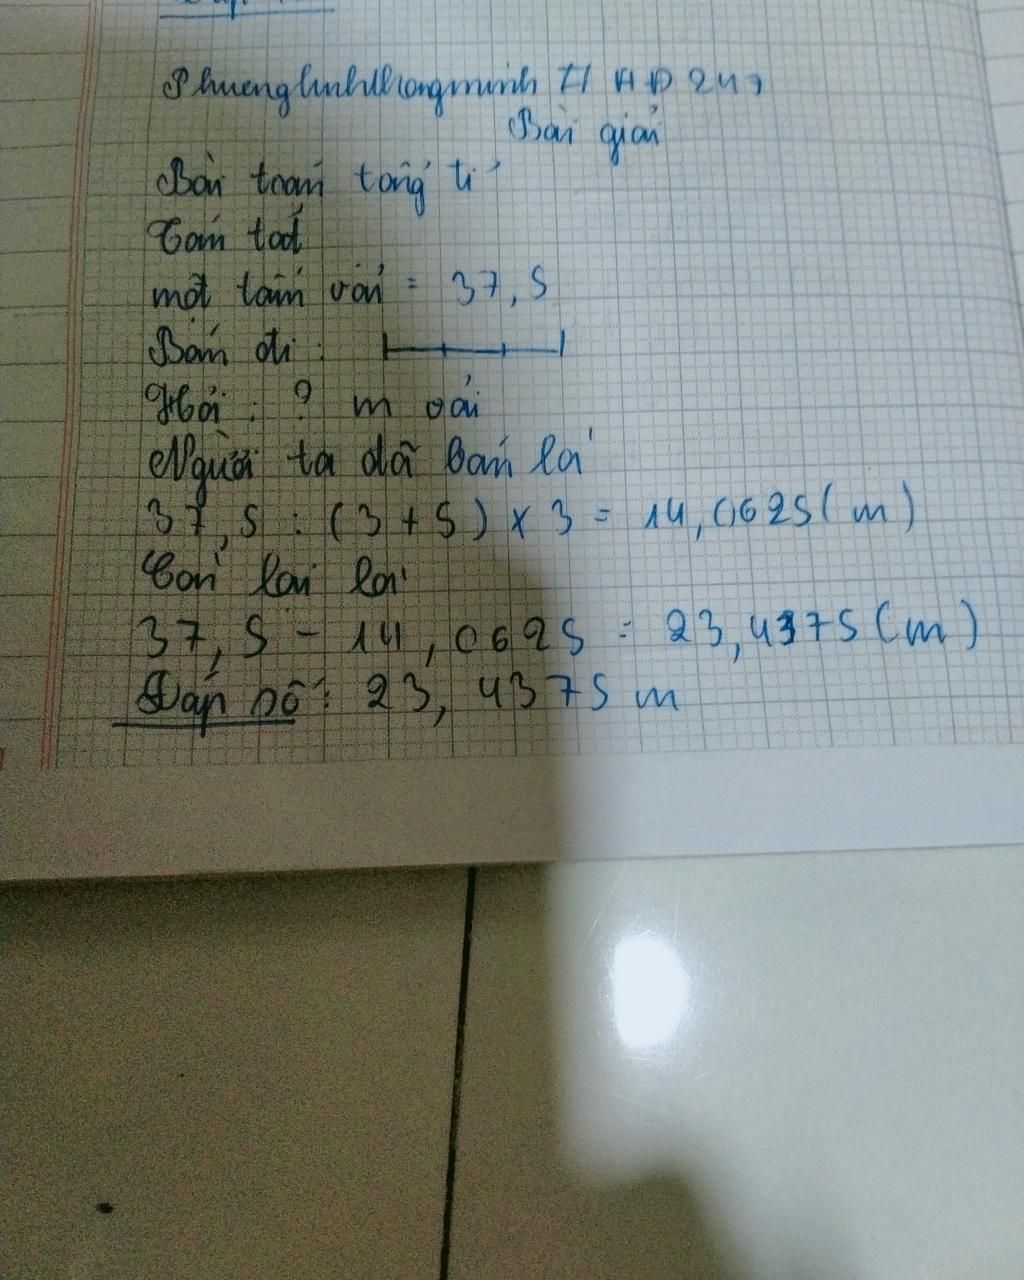 Bài giải
Bài toán tổng tỉ
Tóm tắt
một tấm vải = 37,5
Bán đi :
Hỏi : ? m vải
Người ta đã bán là
37,5 : (3 + 5) x 3 = 14,0625 (m)
Còn lại là
37,5 - 14,0625 = 23,4375 (m)
Đáp số : 23,4375 m